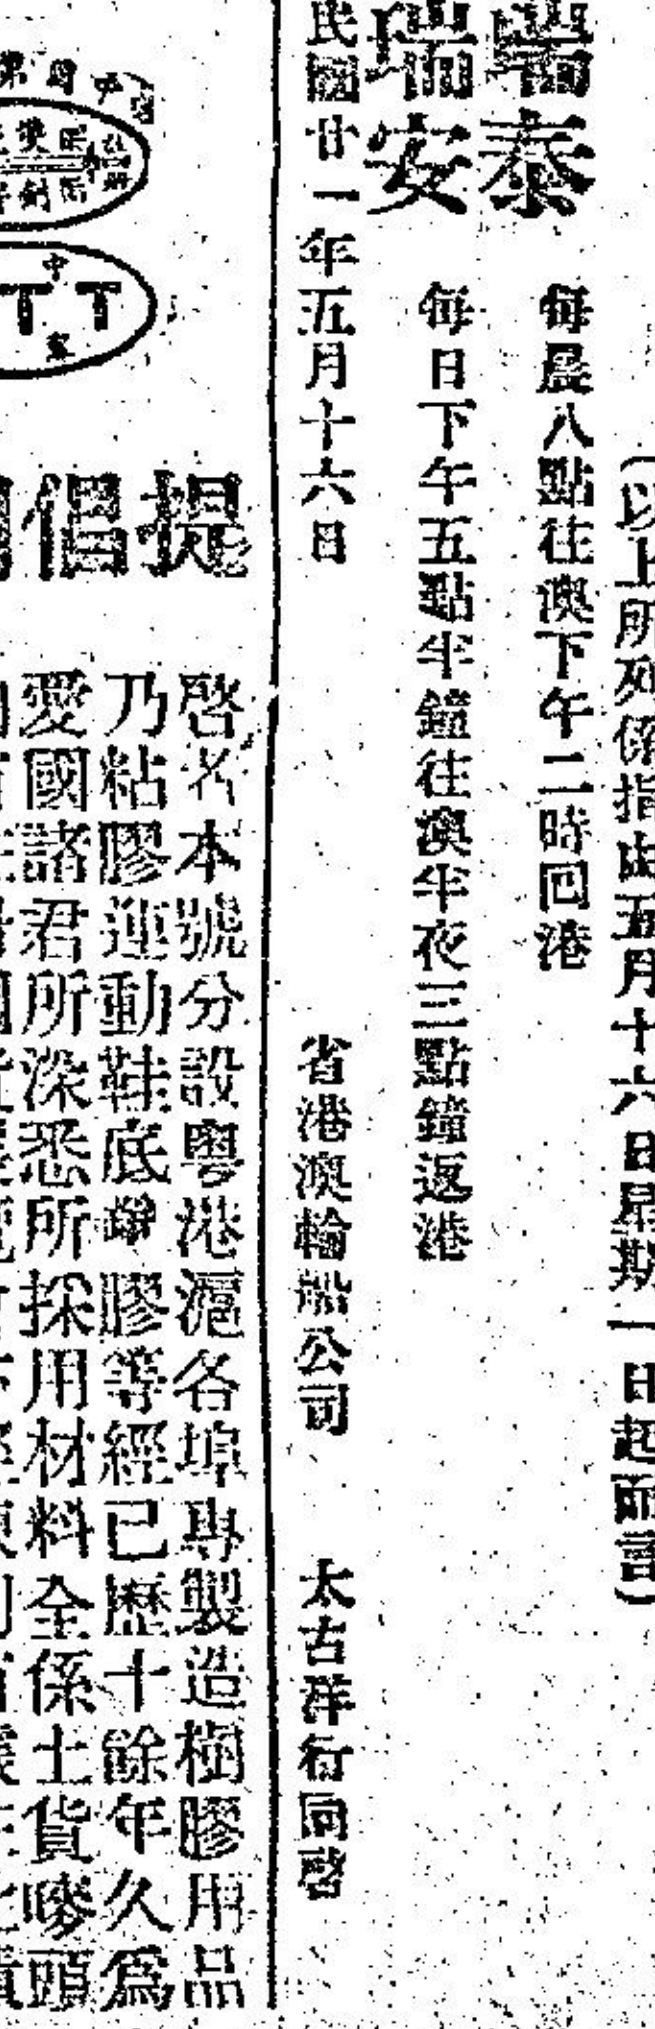 （以上所列係指由五月十六日星期一日起而言）
瑞泰
每晨八點往澳下午二時回港
瑞安
每日下午五點半鐘往澳半夜三點鐘返港
民國廿一年五月十六日
省港澳輪船公司
太古洋行同啓
提倡
啓者本號分設粵港滬各埠專製造樹膠用品
乃粘膠運動鞋底 膠等經已歷十餘年久爲
愛國諸君所深悉所採用材料全係土貨嘜頭
中
TT